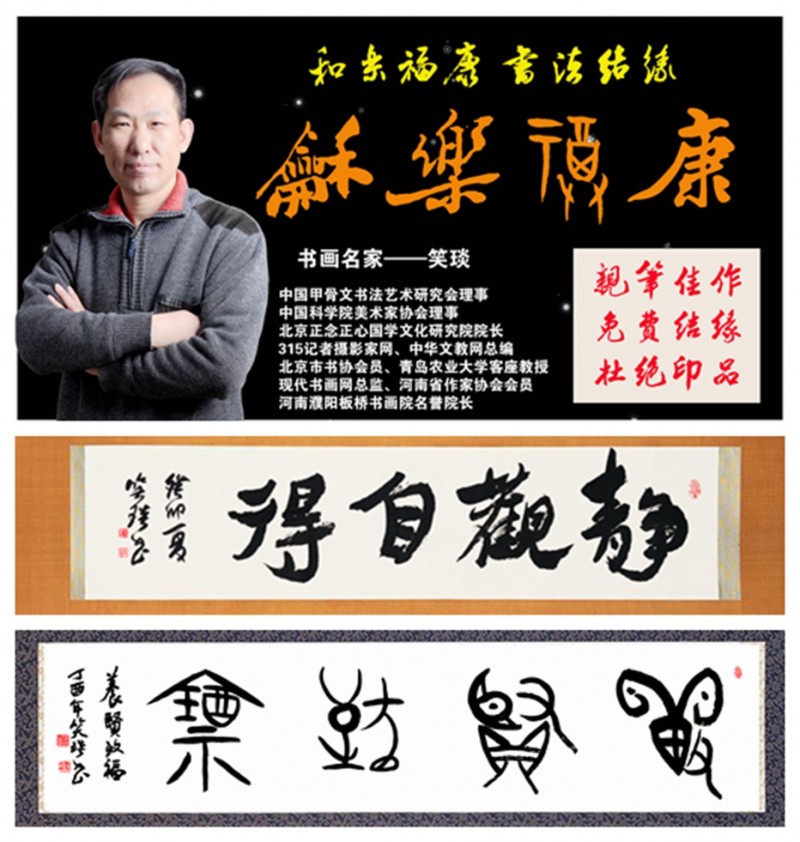 和乐福康 书法结缘
龢樂福康
书画名家——笑琰
中国甲骨文书法艺术研究会理事
中国科学院美术家协会理事
北京正念正心国学文化研究院院长
315记者摄影家网、中华文教网总编
北京市书协会员、青岛农业大学客座教授
现代书画网总监、河南省作家协会会员
河南濮阳板桥书画院名誉院长
親筆佳作
免費結緣
杜绝印品
静觀自得
癸卯夏
笑琰书
養賢致福
养賢致福
丁酉年笑琰书